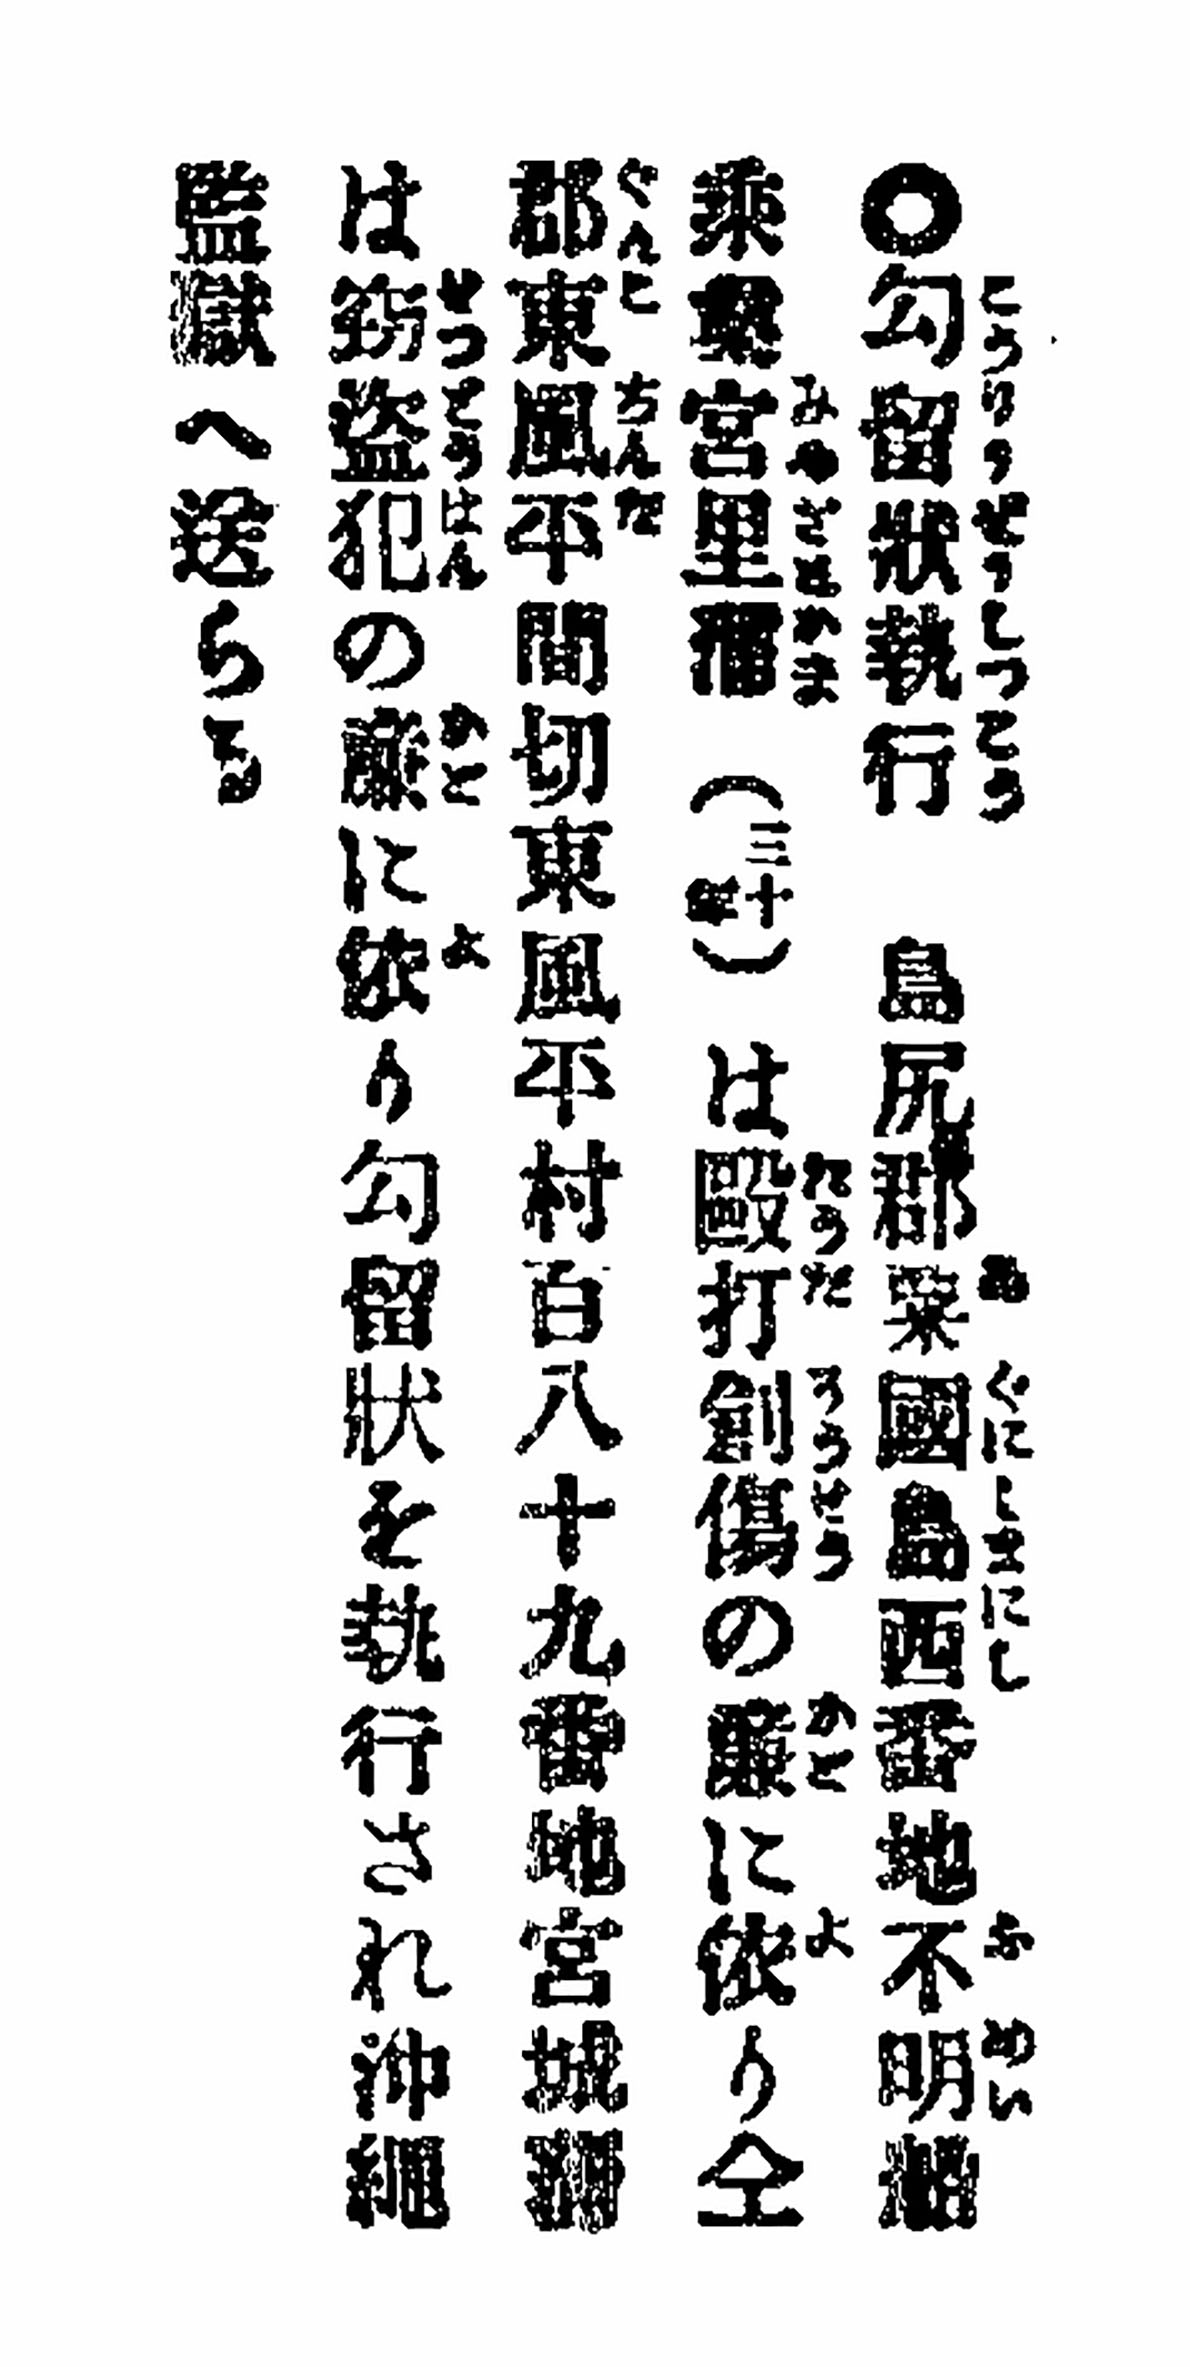 ○勾留狀執行　島尻郡粟國島西番地不明船
乘業宮里蒲（三十）は毆打創傷の廉に依り仝
郡東風平間切東風平村百八十九番地宮城
は窃盜犯の廉に依り勾留狀を執行され沖繩
監獄へ送らる